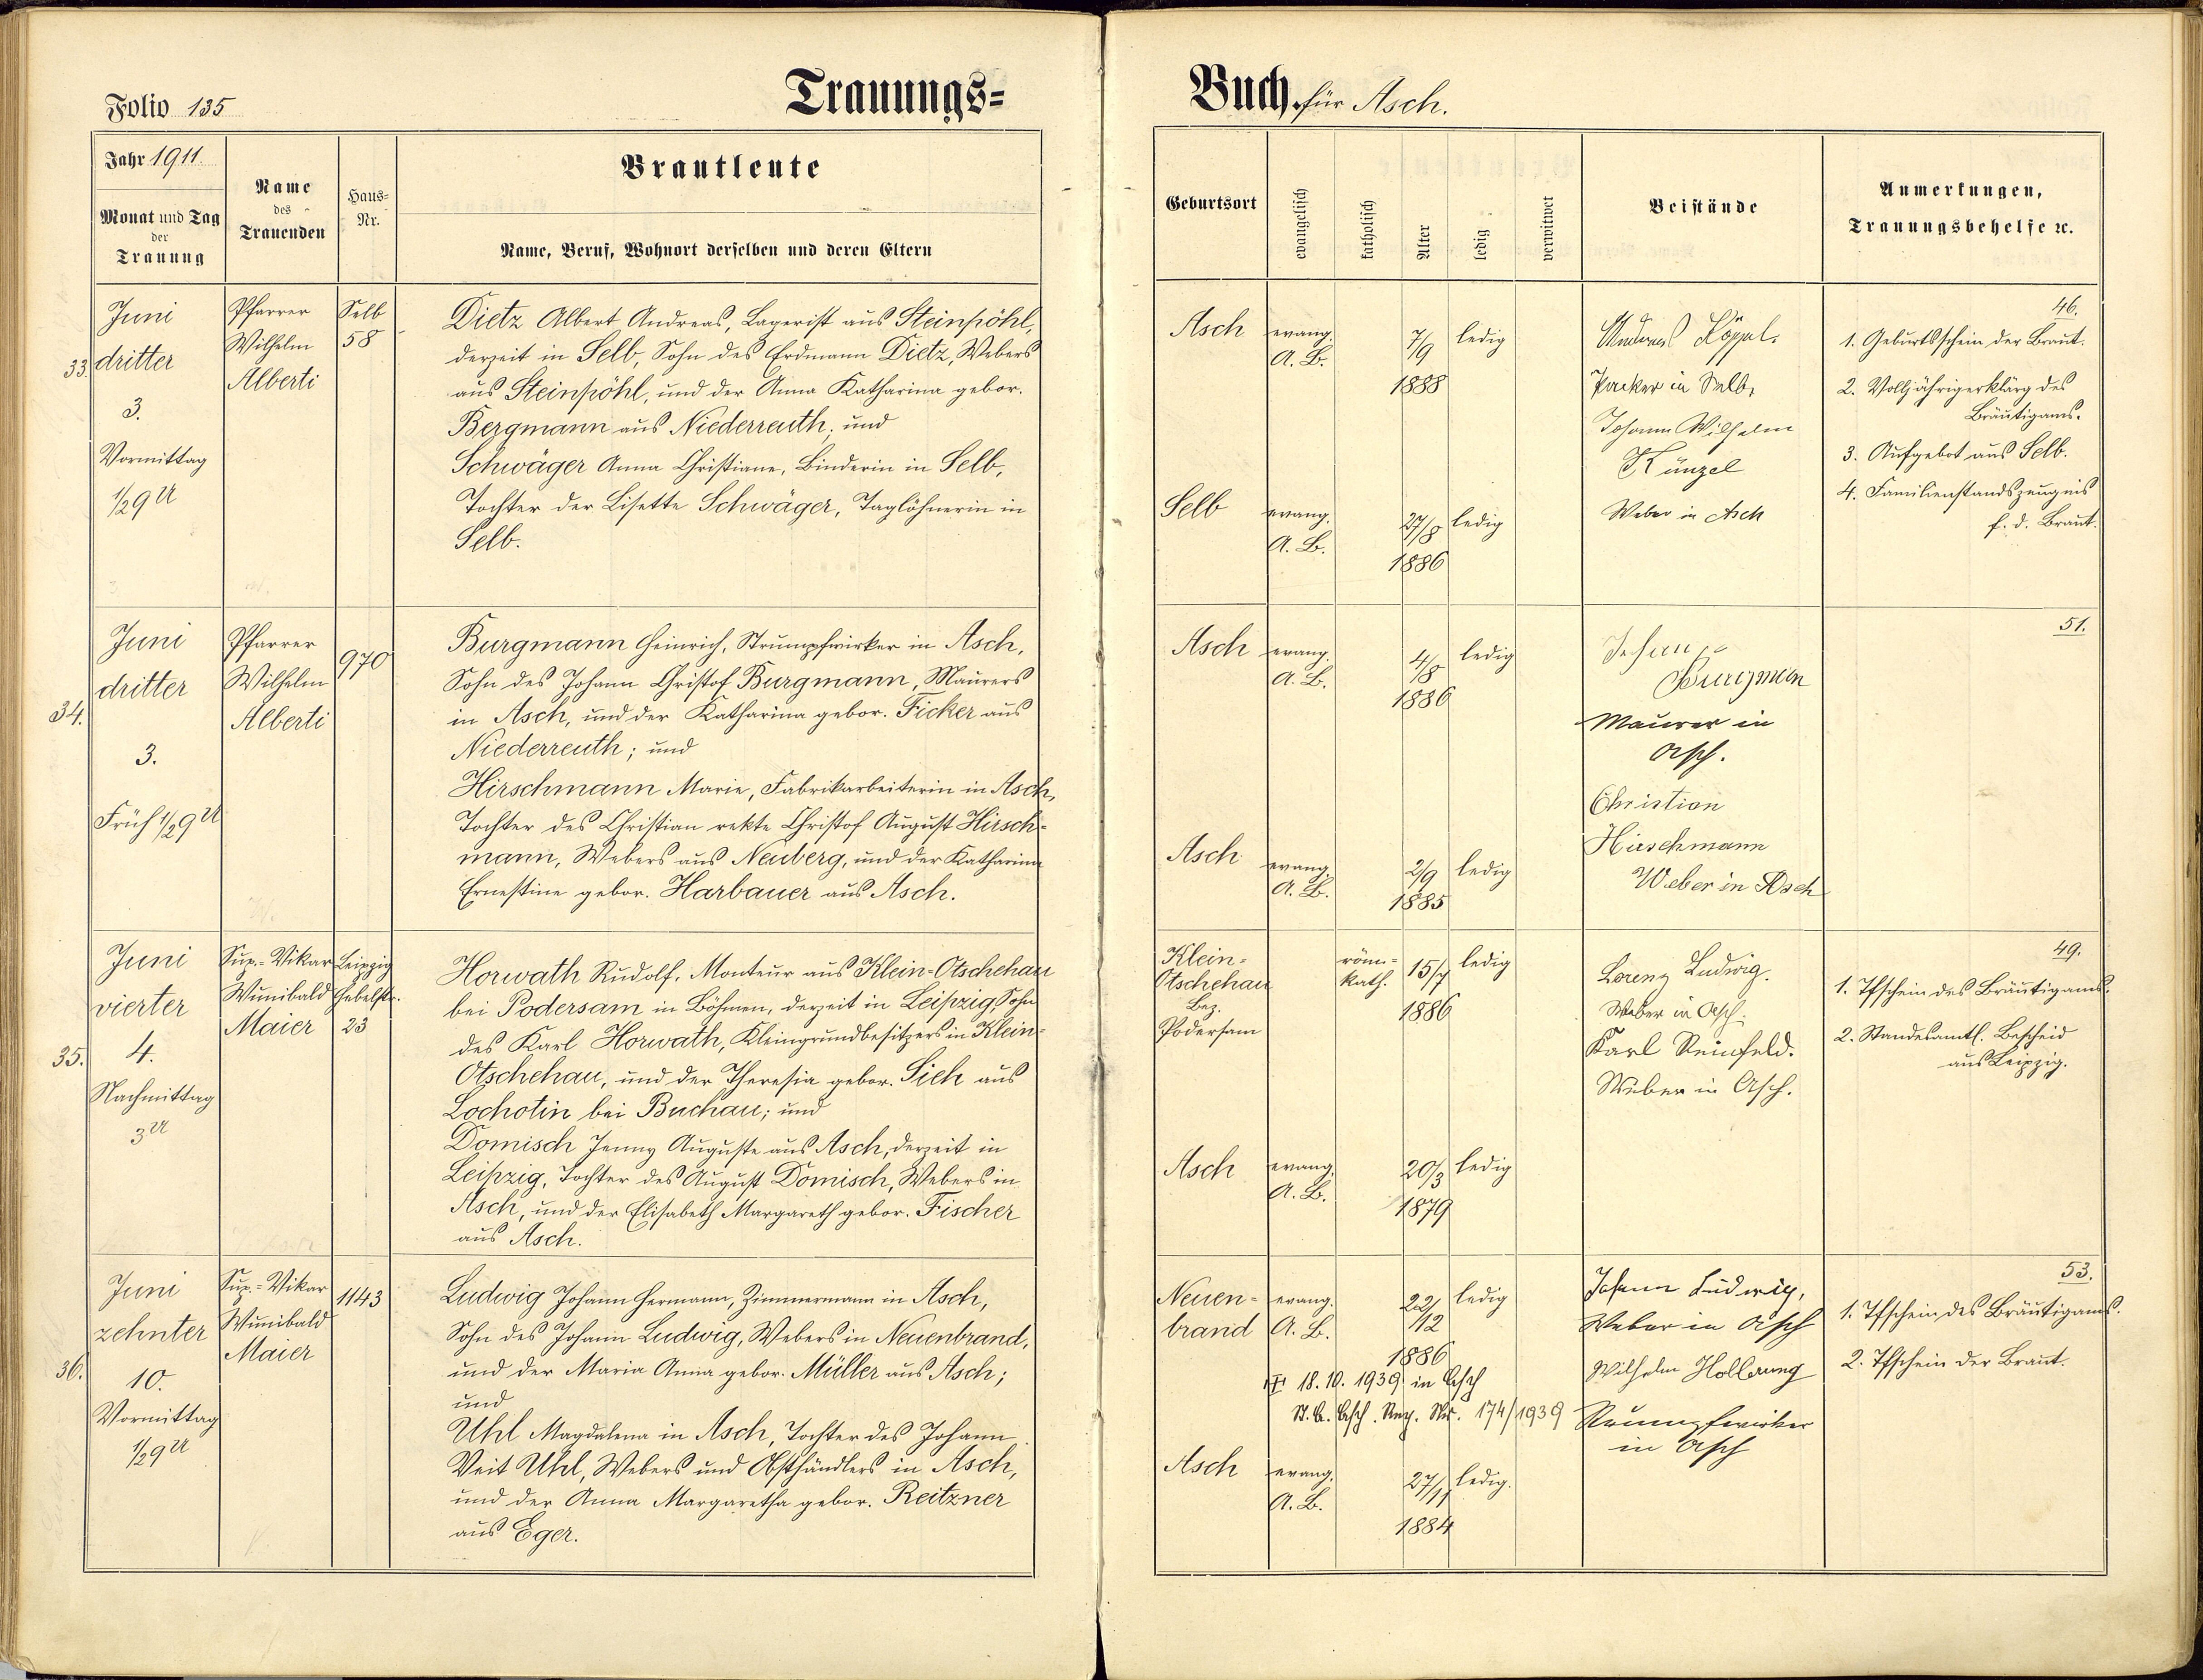 Folio 135
Trauungs=
Jahr 1911.
Monat und Tag
der
Trauung
Name
des
Trauenden
Haus=
Nr.
Brautleute
Name, Beruf, Wohnort derselben und deren Eltern
33.
Juni
dritter
3.
Vormittag
1/2 9 U
Pfarrer
Wilhelm
Alberti
Selb
58
Dietz Albert Andreas, Lagerist aus Steinpöhl,
derzeit in Selb, Sohn des Erdmann Dietz, Webers
aus Steinpöhl, und der Anna Katharina gebor.
Bergmann aus Niederreuth; und
Schwäger Anna Christiane, Binderin in Selb,
Tochter der Lisette Schwäger, Taglöhnerin in
Selb.
34.
Juni
dritter
3.
Früh 1/2 9 U
Pfarrer
Wilhelm
Alberti
970
Burgmann Heinrich, Strumpfwirker in Asch,
Sohn des Johann Christof Burgmann, Maurers
in Asch, und der Katharina gebor. Ficker aus
Niederreuth; und
Hirschmann Marie, Fabrikarbeiterin in Asch,
Tochter des Christian rekte Christof August Hirsch=
mann, Webers aus Neuberg, und der Katharina
Ernestine gebor. Harbauer aus Asch.
35.
Juni
vierter
4.
Nachmittag
3 U
Sup.-Vikar
Wunibald
Maier
Leipzig
Hebelstr.
23
Horwath Rudolf, Monteur aus Klein-Otschehau
bei Podersam in Böhmen, derzeit in Leipzig, Sohn
des Karl Horwath, Kleingrundbesitzers in Klein=
Otschehau, und der Theresia gebor. Sieh aus
Lochotin bei Buchau; und
Domisch Jenny Auguste aus Asch, derzeit in
Leipzig, Tochter des August Domisch, Webers in
Asch, und der Elisabeth Margareth gebor. Fischer
aus Asch.
36.
Juni
zehnter
10.
Vormittag
1/2 9 U
Sup.=Vikar
Wunibald
Maier
1143
Ludwig Johann Hermann, Zimmermann in Asch,
Sohn des Johann Ludwig, Webers in Neuenbrand,
und der Maria Anna gebor. Müller aus Asch;
und
Uhl Magdalena in Asch, Tochter des Johann
Veit Uhl, Webers und Obsthändlers in Asch,
und der Anna Margaretha gebor. Reitzner
aus Eger.
Buch für Asch.
Geburtsort
evangelisch
katholisch
Alter
ledig
verwitwet
Beistände
Anmerkungen,
Trauungsbehelfe 2c.
Asch
evang.
A. B.
7/9
1888
ledig
Selb
evang.
A. B.
27/8
1886
ledig
Andreas Köppel,
Packer in Selb,
Johann Wilhelm
Künzel
Weber in Asch
46.
1. Geburtsschein der Braut.
2. Volljährigerklärg des
Bräutigams.
3. Aufgebot aus Selb.
4. Familienstandszeugnis
f. d. Braut.
Asch
evang.
A. B.
4/8
1886
ledig
Asch
evang.
A. B.
2/9
1885
ledig
Johann
Burgman
Maurer in
Asch.
Christian
Hirschmann
Weber in Asch
51.
Klein-
Otschehau
Bez.
Podersam
röm.-
kath.
15/7
1886
ledig
Asch
evang.
A. B.
20/3
1879
ledig
Lorenz Ludwig.
Weber in Asch.
Karl Reinfeld.
Weber in Asch.
49.
1. Tfschein des Bräutigams.
2. Standesamtl. Bescheid
aus Leipzig.
Neuen-
brand
evang.
A. B.
22/12
1886
ledig
18.10.1939 in Asch
St. A. Asch. Reg. Nr. 174/1939
Asch
evang.
A. B.
27/11
1884
ledig.
Johann Ludwig,
Weber in Asch
Wilhelm Hollerung
Strumpfwirker
in Asch
53.
1. Tfschein des Bräutigams.
2. Tfschein der Braut.